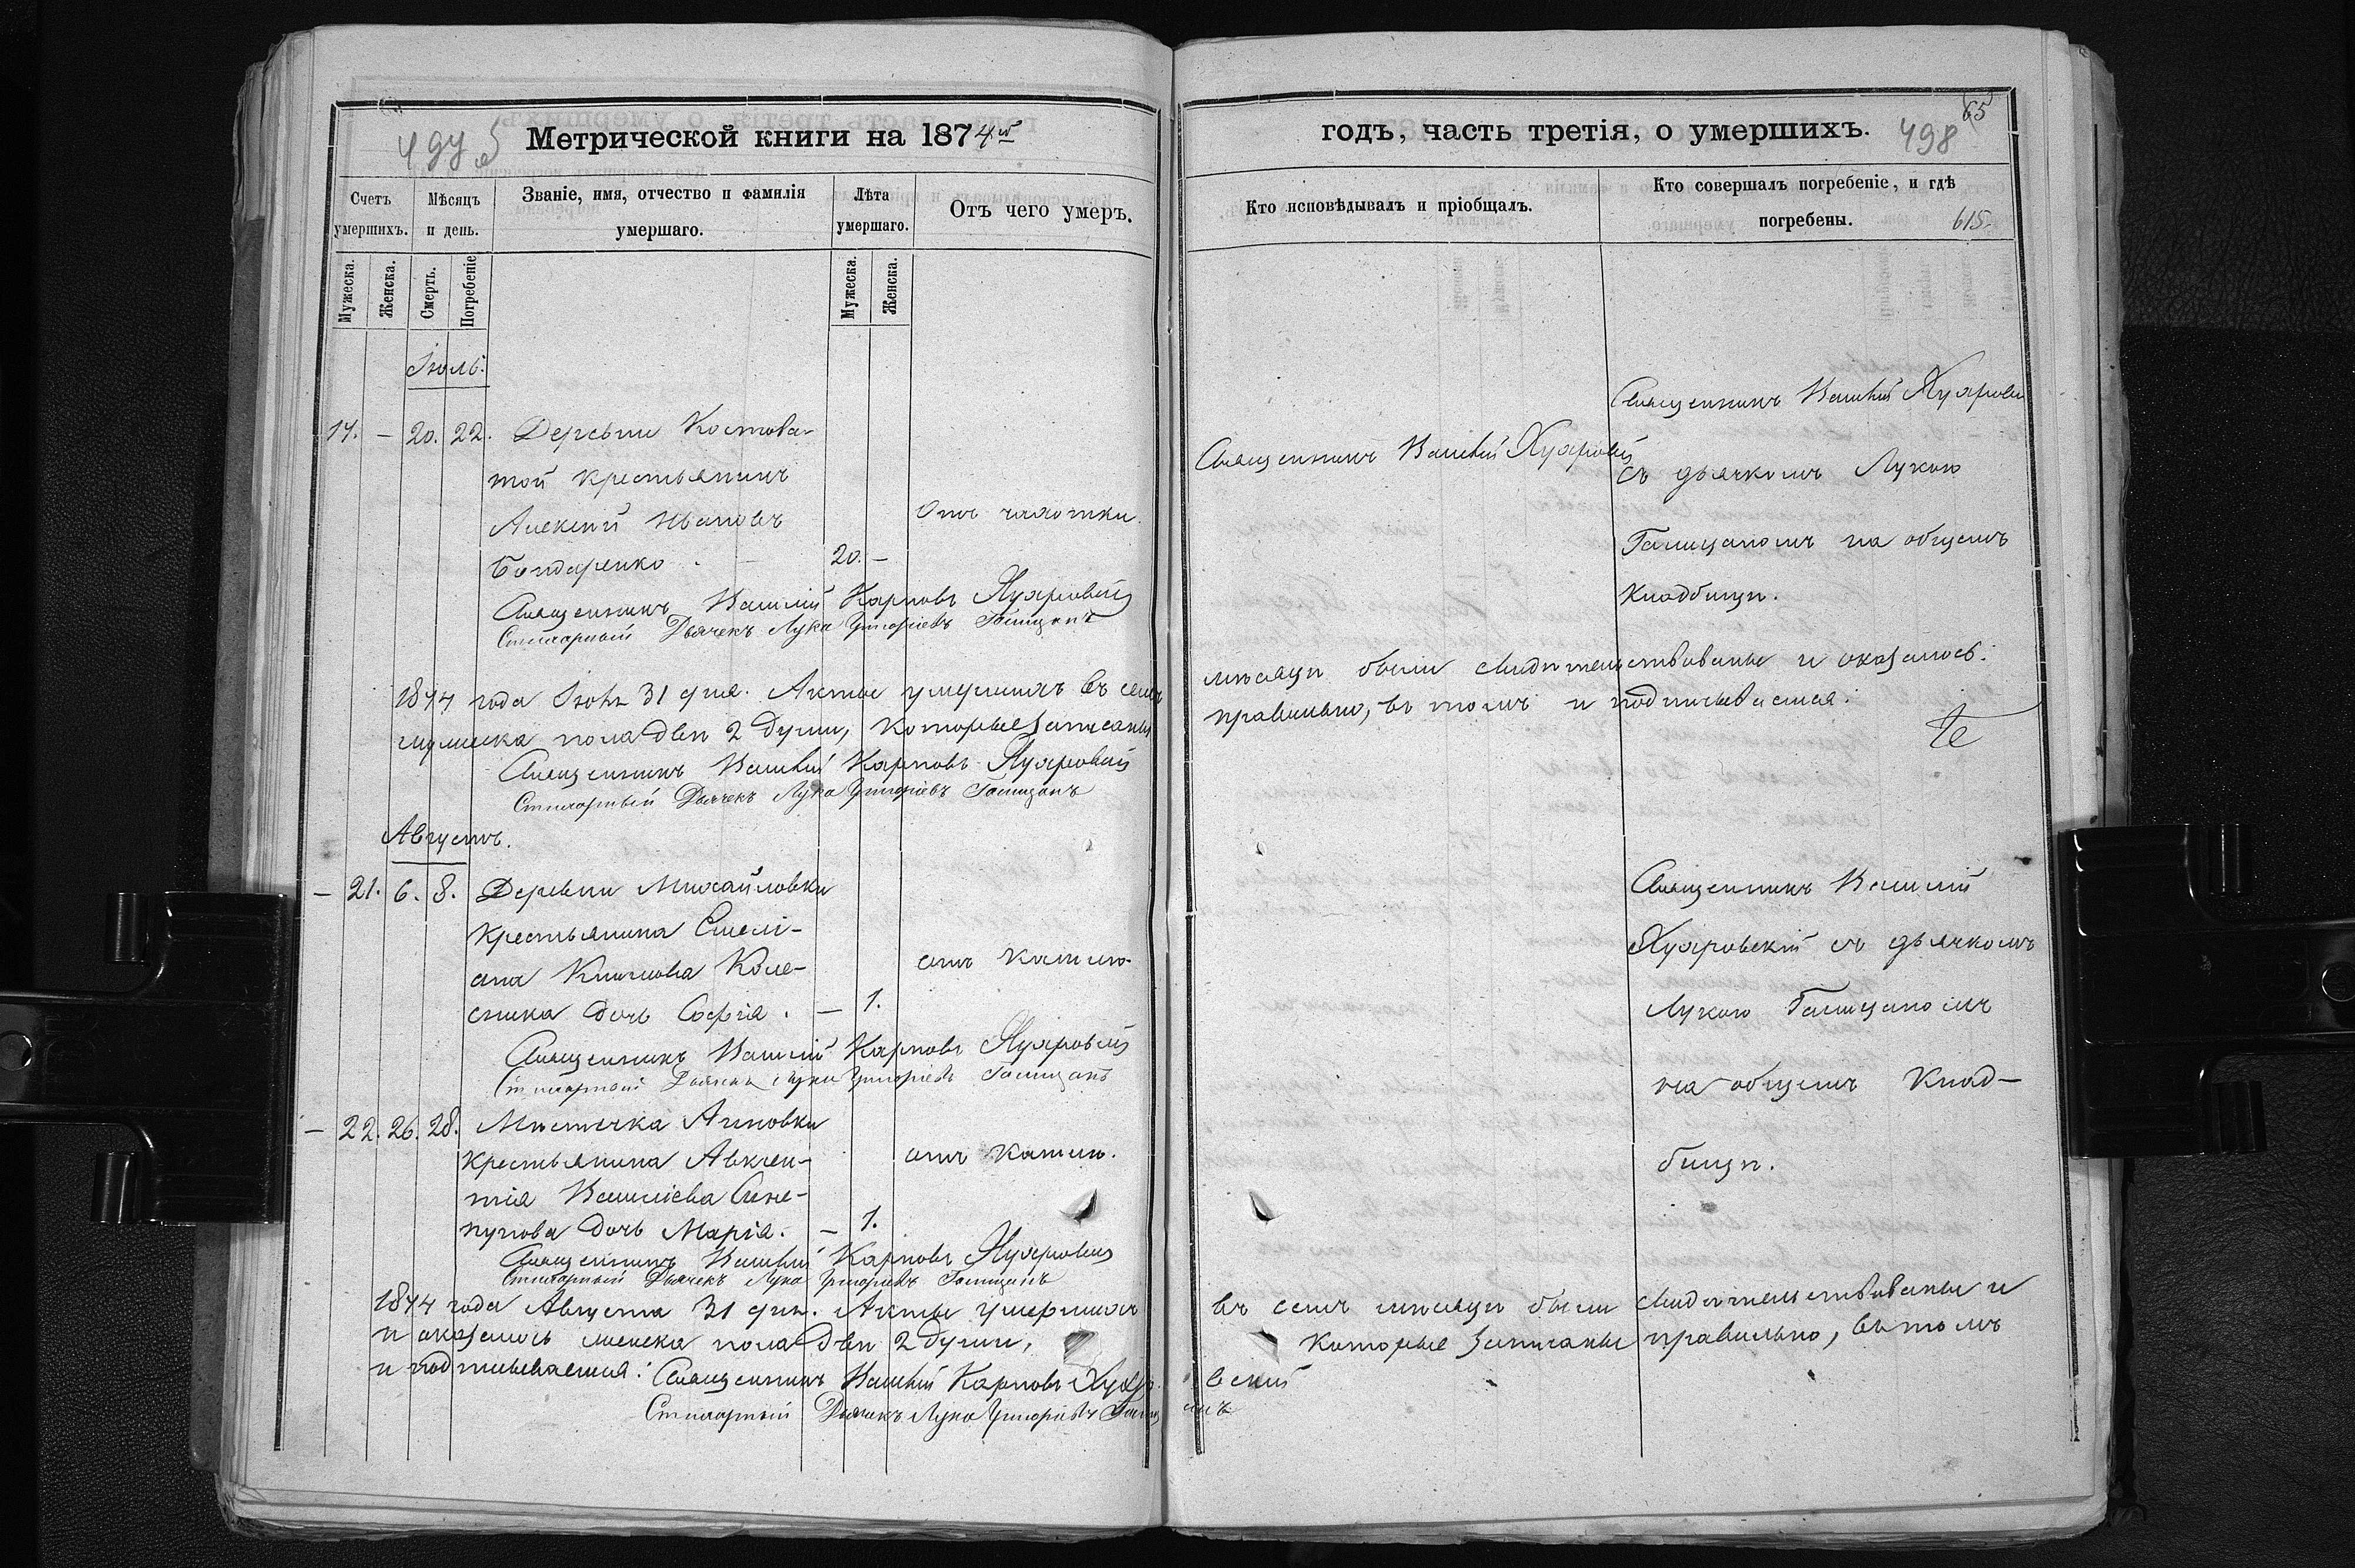 Метрической книги на 1874й
годъ, часть третія, о умершихъ.
65
498
Счетъ умершихъ.
Мѣсяцъ и день.
Званіе, имя, отчество и фамилія умершаго.
Лѣта умершаго.
Отъ чего умеръ.
Кто исповѣдывалъ и пріобщалъ.
Кто совершалъ погребеніе, и гдѣ погребены.
615.
Мужеска.
Женска.
Смерть.
Погребеніе
Мужеска.
Женска.
Іюль.
14. – 20. 22. Деревни Костова-
той крестьянинъ
Алексій Ивановъ
Бондаренко. – 20. –
Отъ чахотки.
Священникъ Василій
Священникъ Василій
съ дьячкомъ Лукою
Галицаномъ на общемъ
Кладбищѣ.
Священникъ Василій Карповъ
Стихарный Дьячекъ Лука Григоріевъ Галицанъ
1874 года Іюля 31 дня. Акты умершихъ въ семъ
мѣсяцѣ были свидѣтельствованы и оказалось:
мужеска пола двѣ 2 души, которые записаны
правильно, въ томъ и подписываемся:
Священникъ Василій Карповъ
Стихарный Дьячекъ Лука Григоріевъ Галицанъ
Августъ.
– 21. 6. 8. Деревни Михайловки
крестьянина Емелі-
ана Климова Коле-
сника дочь Софія. – 1.
отъ кашлю
Священникъ Василій
съ дьячкомъ
Лукою Галицаномъ
на общемъ Клад-
бищѣ.
Священникъ Василій Карповъ
Стихарный Дьячекъ Лука Григоріевъ Галицанъ
– 22. 26. 28. Мѣстечка Анновки
крестьянина Авксен-
тія Василіева Сине-
пупова дочь Марія. – 1.
отъ кашлю.
Священникъ Василій Карповъ
Стихарный Дьячекъ Лука Григоріевъ Галицанъ
1874 года Августа 31 дня. Акты умершихъ
въ семъ мѣсяцѣ были свидѣтельствованы и
и оказалось женска пола двѣ 2 души,
которые записаны правильно, въ томъ
и подписываемся: Священникъ Василій Карповъ
Стихарный Дьячекъ Лука Григоріевъ Галицанъ